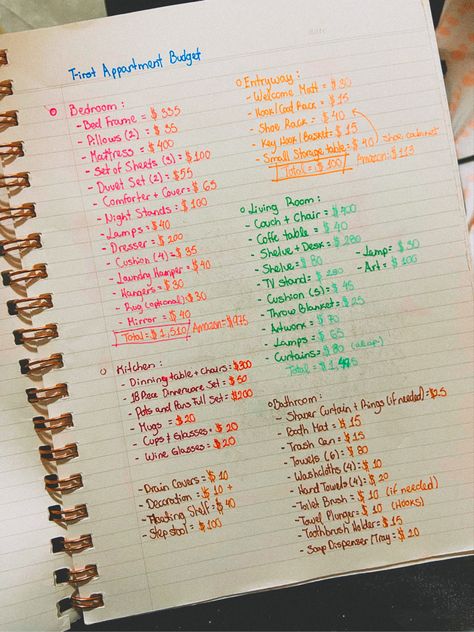 First Appartment Budget
Bedroom :
- Bed Frame = $ 335
- Pillows (2) = $ 55
- Mattress = $ 400
- Set of Sheets (3) = $100
- Duvet Set (2) = $55
- Comforter + Covers = $ 65
- Night Stands = $ 100
- Lamps = $ 40
- Dresser = $ 200
- Cushion (4) = $ 35
- Laundry Hamper = $ 40
- Hangers = $ 30
- Rug (optional) $30
- Mirror = $ 40
Total = $ 1,510 Amazon = $975
Kitchen :
- Dinning table + Chairs = $300
- 18 Piece Dinnerware Set = $ 50
- Pots and Pans Full Set = $200
- Mugs = $ 20
- Cups & Glasses = $ 20
- Wine Glasses = $ 20
- Drain Covers = $ 10
- Decoration = $ 10 +
- Floating Shelf = $ 40
- Step stool = $ 100
Entryway :
- Welcome Matt = $ 30
- Hook/Coat Rack = $ 15
- Shoe Rack = $ 40
- Key Hook/Basket = $ 15
- Small Storage table = $ 40 shoe cabinet
Total = $ 100 Amazon = $ 113
Living Room :
- Couch + Chair = $400
- Coffe table = $ 40
- Shelve + Desk = $ 280
- Shelve = $ 80 - Lamp = $ 30
- TV stand = $ 280 - Art = $ 100
- Cushion (s) = $ 45
- Throw Blanket = $ 25
- Artwork = $ 70
- Lamps = $ 65
- Curtains = $ 80
Total =
Bathroom :
- Shower Curtain + Rings (if needed) = $25
- Bath Mat = $ 15
- Trash Can = $ 15
- Towels (6) = $ 80
- Washcloths (4) = $ 10
- Hand Towels (4) = $ 20
- Toilet Brush = $ 10 (if needed)
- Towel Plunger = $ 10 (Hooks)
- Toothbrush Holder = $ 15
- Soap Dispenser/Tray = $ 20